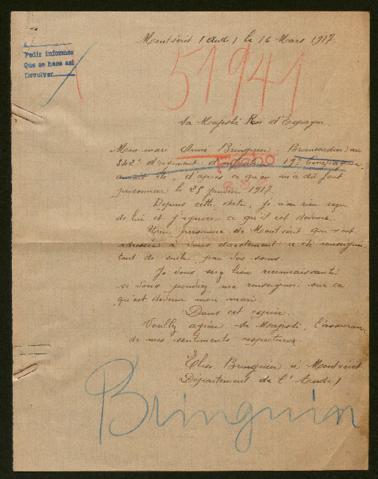 Montséret (Aude) le 16 Mars 1917.
Pedir informes
Que se haga asi
Devolver
51941
Sa Majesté Roi d'Espagne
Mon mari Bringuier Brancardier au
342e d'Infanterie 19e Compagnie
aurait été, d'après ce qu'on m'a dit fait
prisonnier le 25 janvier 1917.
Depuis cette date, je n'ai rien reçu
de lui et j'ignore ce qu'il est devenu.
Une personne de Montséret qui s'est
adressée à Vous directement a été renseignée
tout de suite par Vos soins.
Je Vous serai bien reconnaissante
si Vous pouviez me renseigner sur ce
qu'est devenu mon mari.
Dans cet espoir,
Veuillez agréer, Sa Majesté, l'assurance
de mes sentiments respectueux.
Bringuier à Montséret
Département de l'Aude)
Bringuier